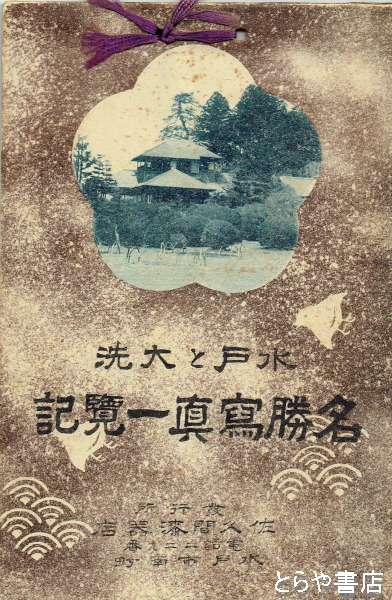 洗大と戸水
記覧一真寫勝名
所行放
店器漆間久佐
番九二二話電
町南市戸水
とらや書店